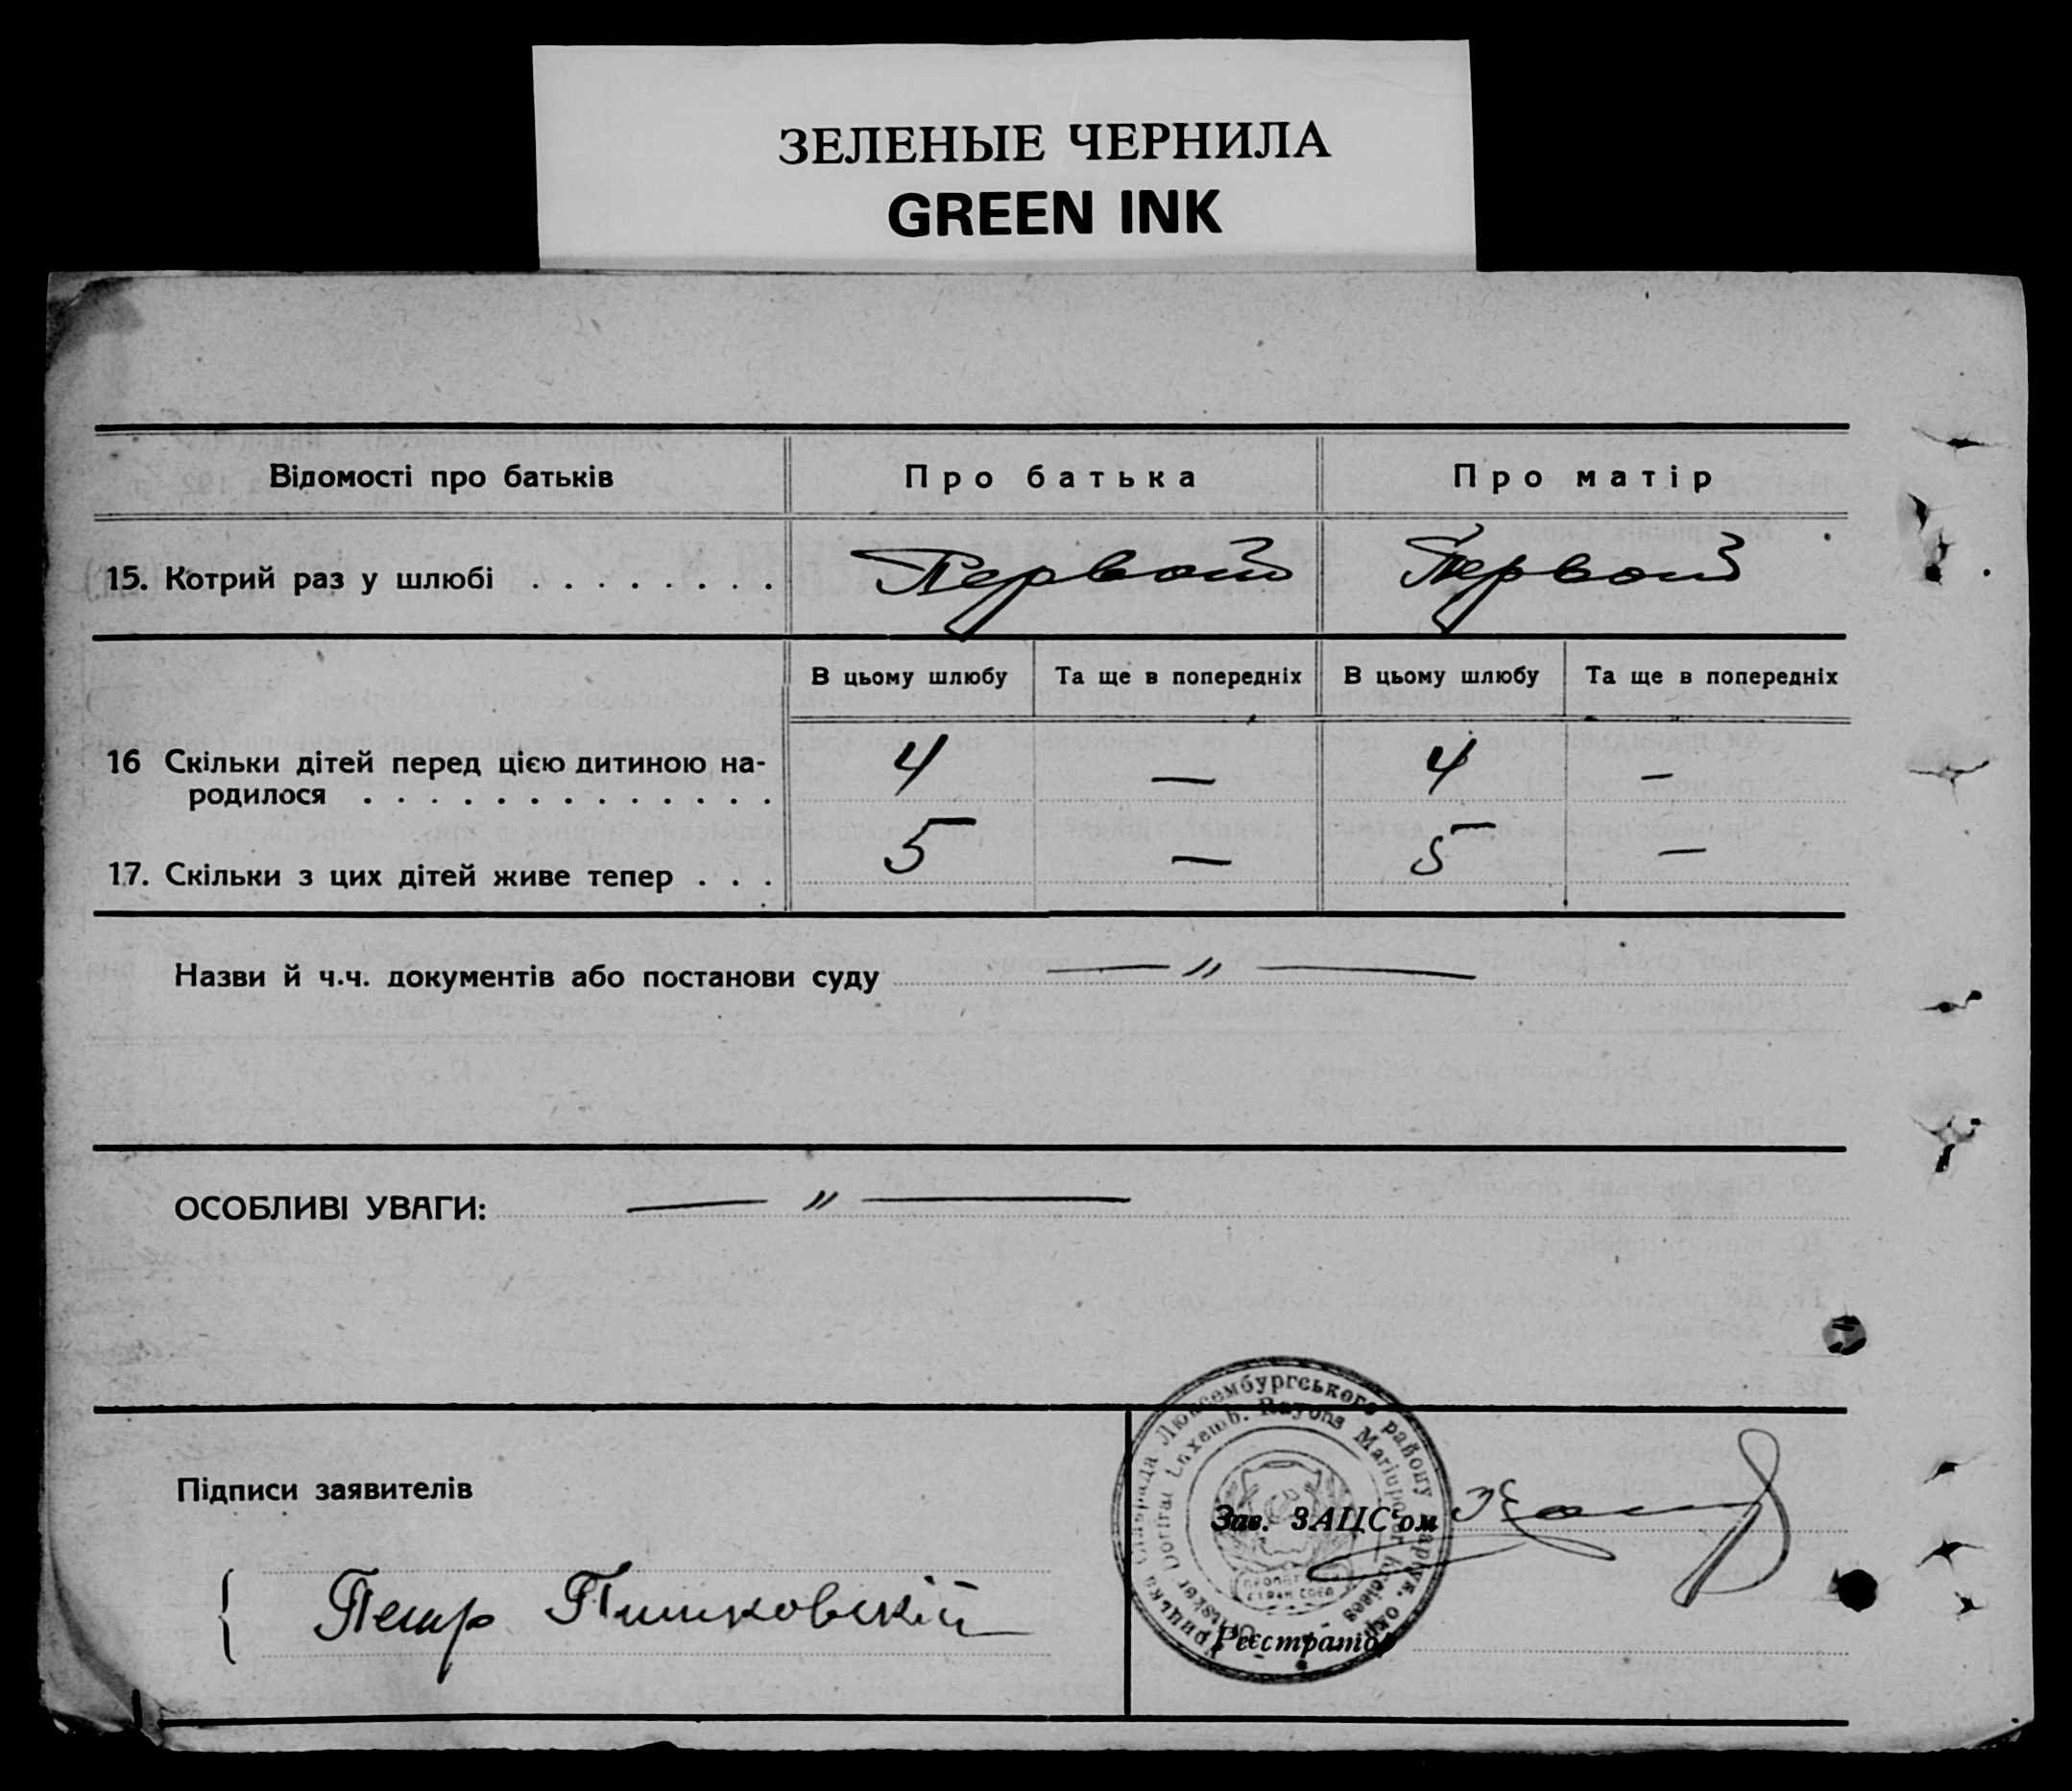 ЗЕЛЕНЫЕ ЧЕРНИЛА
GREEN INK
Відомості про батьків Про батька Про матір
15. Котрий раз у шлюбі . . . . . . . . Первый Первый
В цьому шлюбу Та ще в попередніх В цьому шлюбу Та ще в попередніх
16 Скільки дітей перед цією дитиною на- 4 — 4 —
родилося . . . . . . . . . . . . .
17. Скільки з цих дітей живе тепер . . . 5 — 5 —
Назви й ч.ч. документів або постанови суду — 〃 —
ОСОБЛИВІ УВАГИ: — 〃 —
Люксембургського району Маріуп. окр.
Luxemb. Rayons Mariupoler Kreises
Підписи заявителів
Зав. ЗАЦС‘ом
Петр Пишковскій
Реєстратор